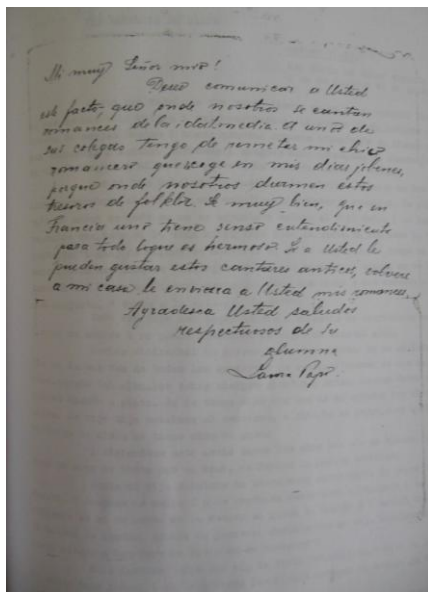 Mi muy Señor mio!
Devo comunicar a Usted
este facto, que onde nosotros se cantan
romances de la idat media. A uno de
sus colegas tengo de remetar mi chico
romancero que scoge en mis dias jovenes,
porque onde nosotros duermen estos
tresoros de folklor. Se muy bien, que en
Francia uno tiene senso entendimiento
para todo loque es hermoso. Si a Usted le
pueden gustar estos cantares anticos, volvere
a mi casa le enviara a Usted mis romances.
Agradesca Usted saludos
respectuosos de su
alumna
Laura Papo.